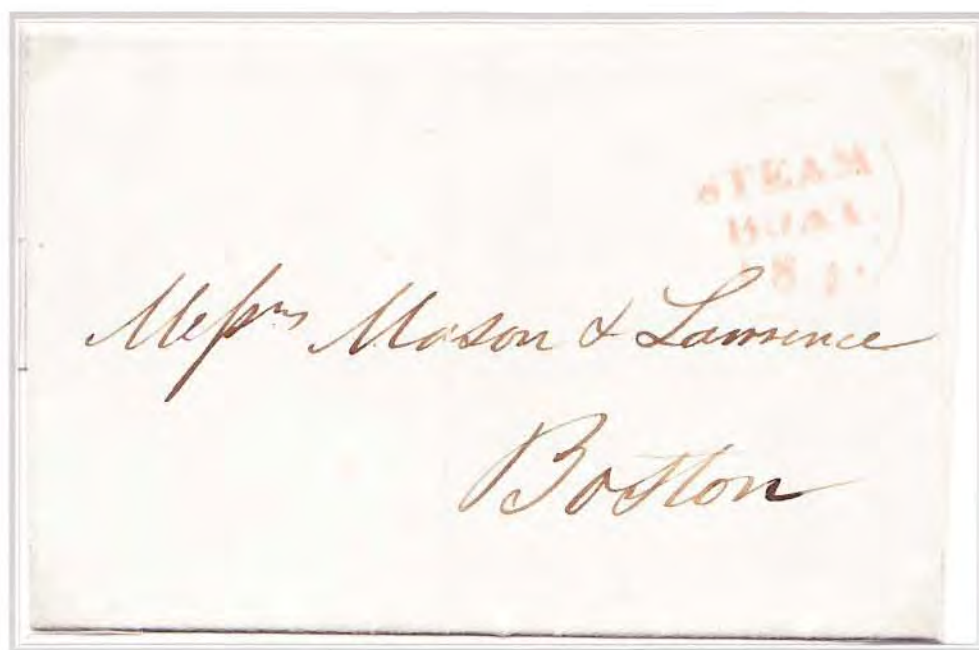 STEAM
BOAT
Messrs Mason & Lawrence
Boston